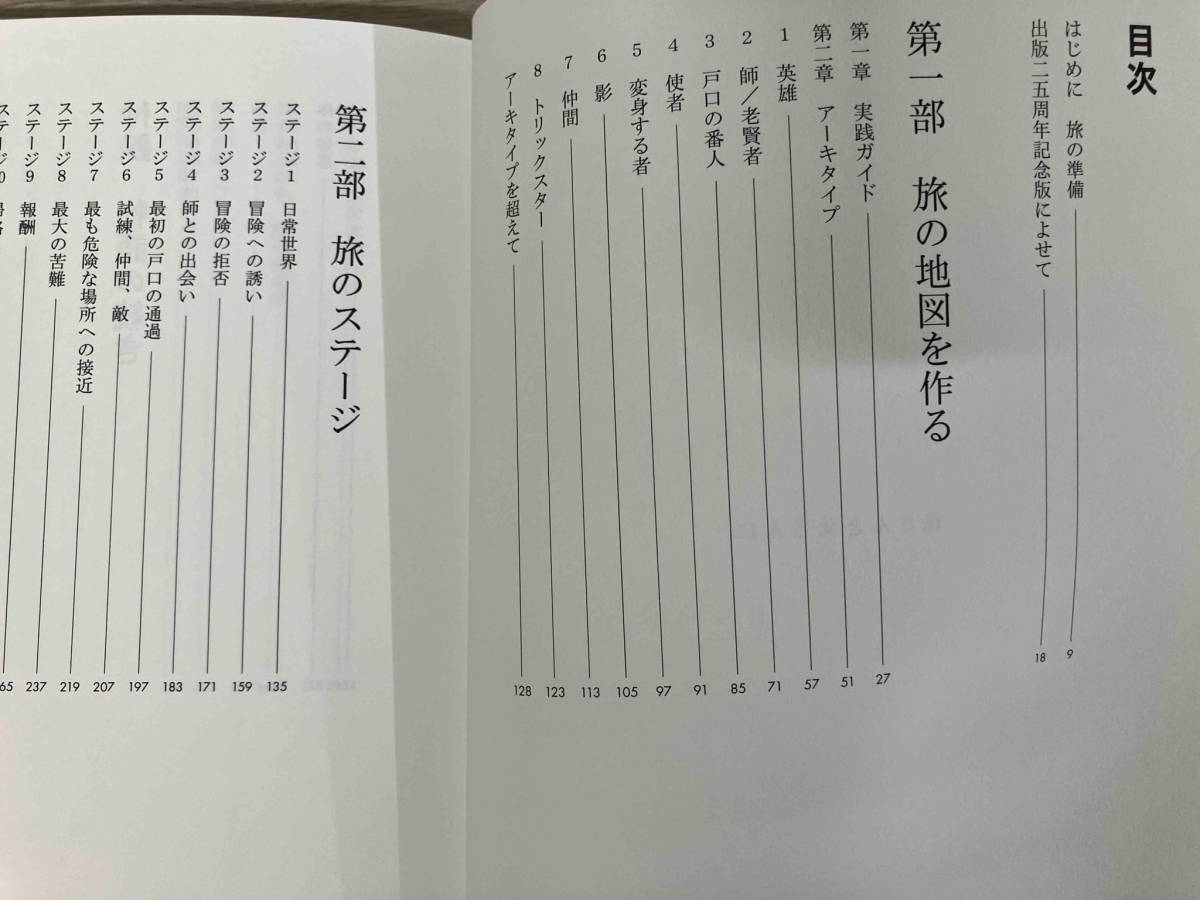 目次
はじめに 旅の準備 9
出版二五周年記念版によせて 18
第一部 旅の地図を作る
第一章 実践ガイド 27
第二章 アーキタイプ 51
1 英雄 57
2 師/老賢者 71
3 戸口の番人 85
4 使者 91
5 変身する者 97
6 影 105
7 仲間 113
8 トリックスター 123
アーキタイプを超えて 128
第二部 旅のステージ
ステージ1 日常世界 135
ステージ2 冒険への誘い 159
ステージ3 冒険の拒否 171
ステージ4 師との出会い 183
ステージ5 最初の戸口の通過 197
ステージ6 試練、仲間、敵 207
ステージ7 最も危険な場所への接近 219
ステージ8 最大の苦難 237
ステージ9 報酬 65
ステージ